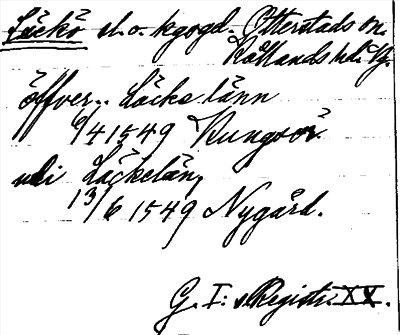 Läckö sl. o. kgsgd. Otterstads sn.
Kållands hd. Vg.
öffver.. Läcke länn
6/4 1549 Kungsör
udi Läckelän,
13/6 1549 Nygård.
G. I:s Registr. XX.